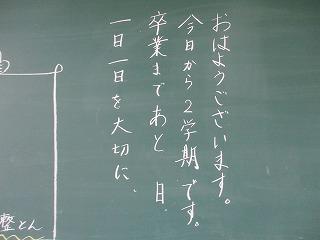 おはようございます。
今日から2学期です。
卒業まであと 日.
一日一日を大切に.
整とん